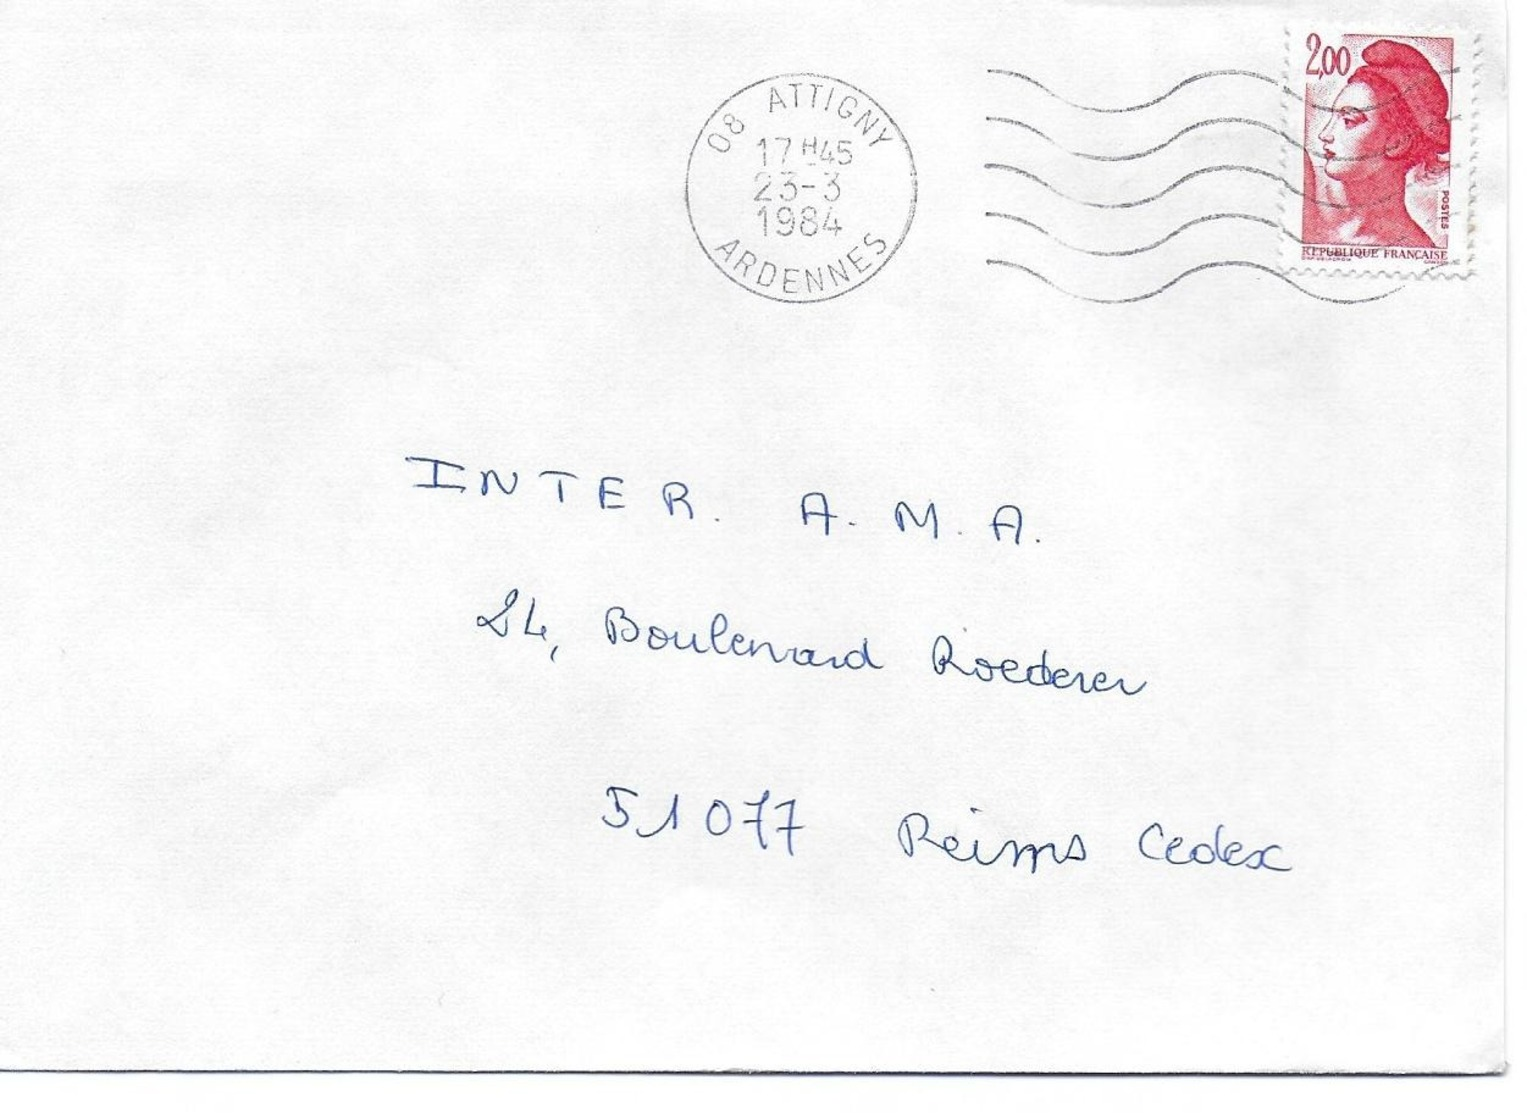 08 ATTIGNY
17H45
23-3
1984
ARDENNES
2,00
POSTES
REPUBLIQUE FRANÇAISE
INTER. A. M. A.
24, Boulevard Roederer
51077 Reims Cedex